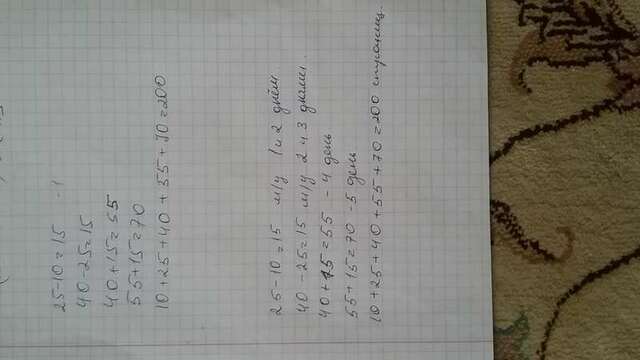 25-10=15 -1
40-25=15
40+15=55
55+15=70
10+25+40+55+70=200
25-10=15 м/у 1 и 2 днём
40-25=15 м/у 2 и 3 днями.
40+15=55 -4 день
55+15=70 -5 день
10+25+40+55+70=200 страниц